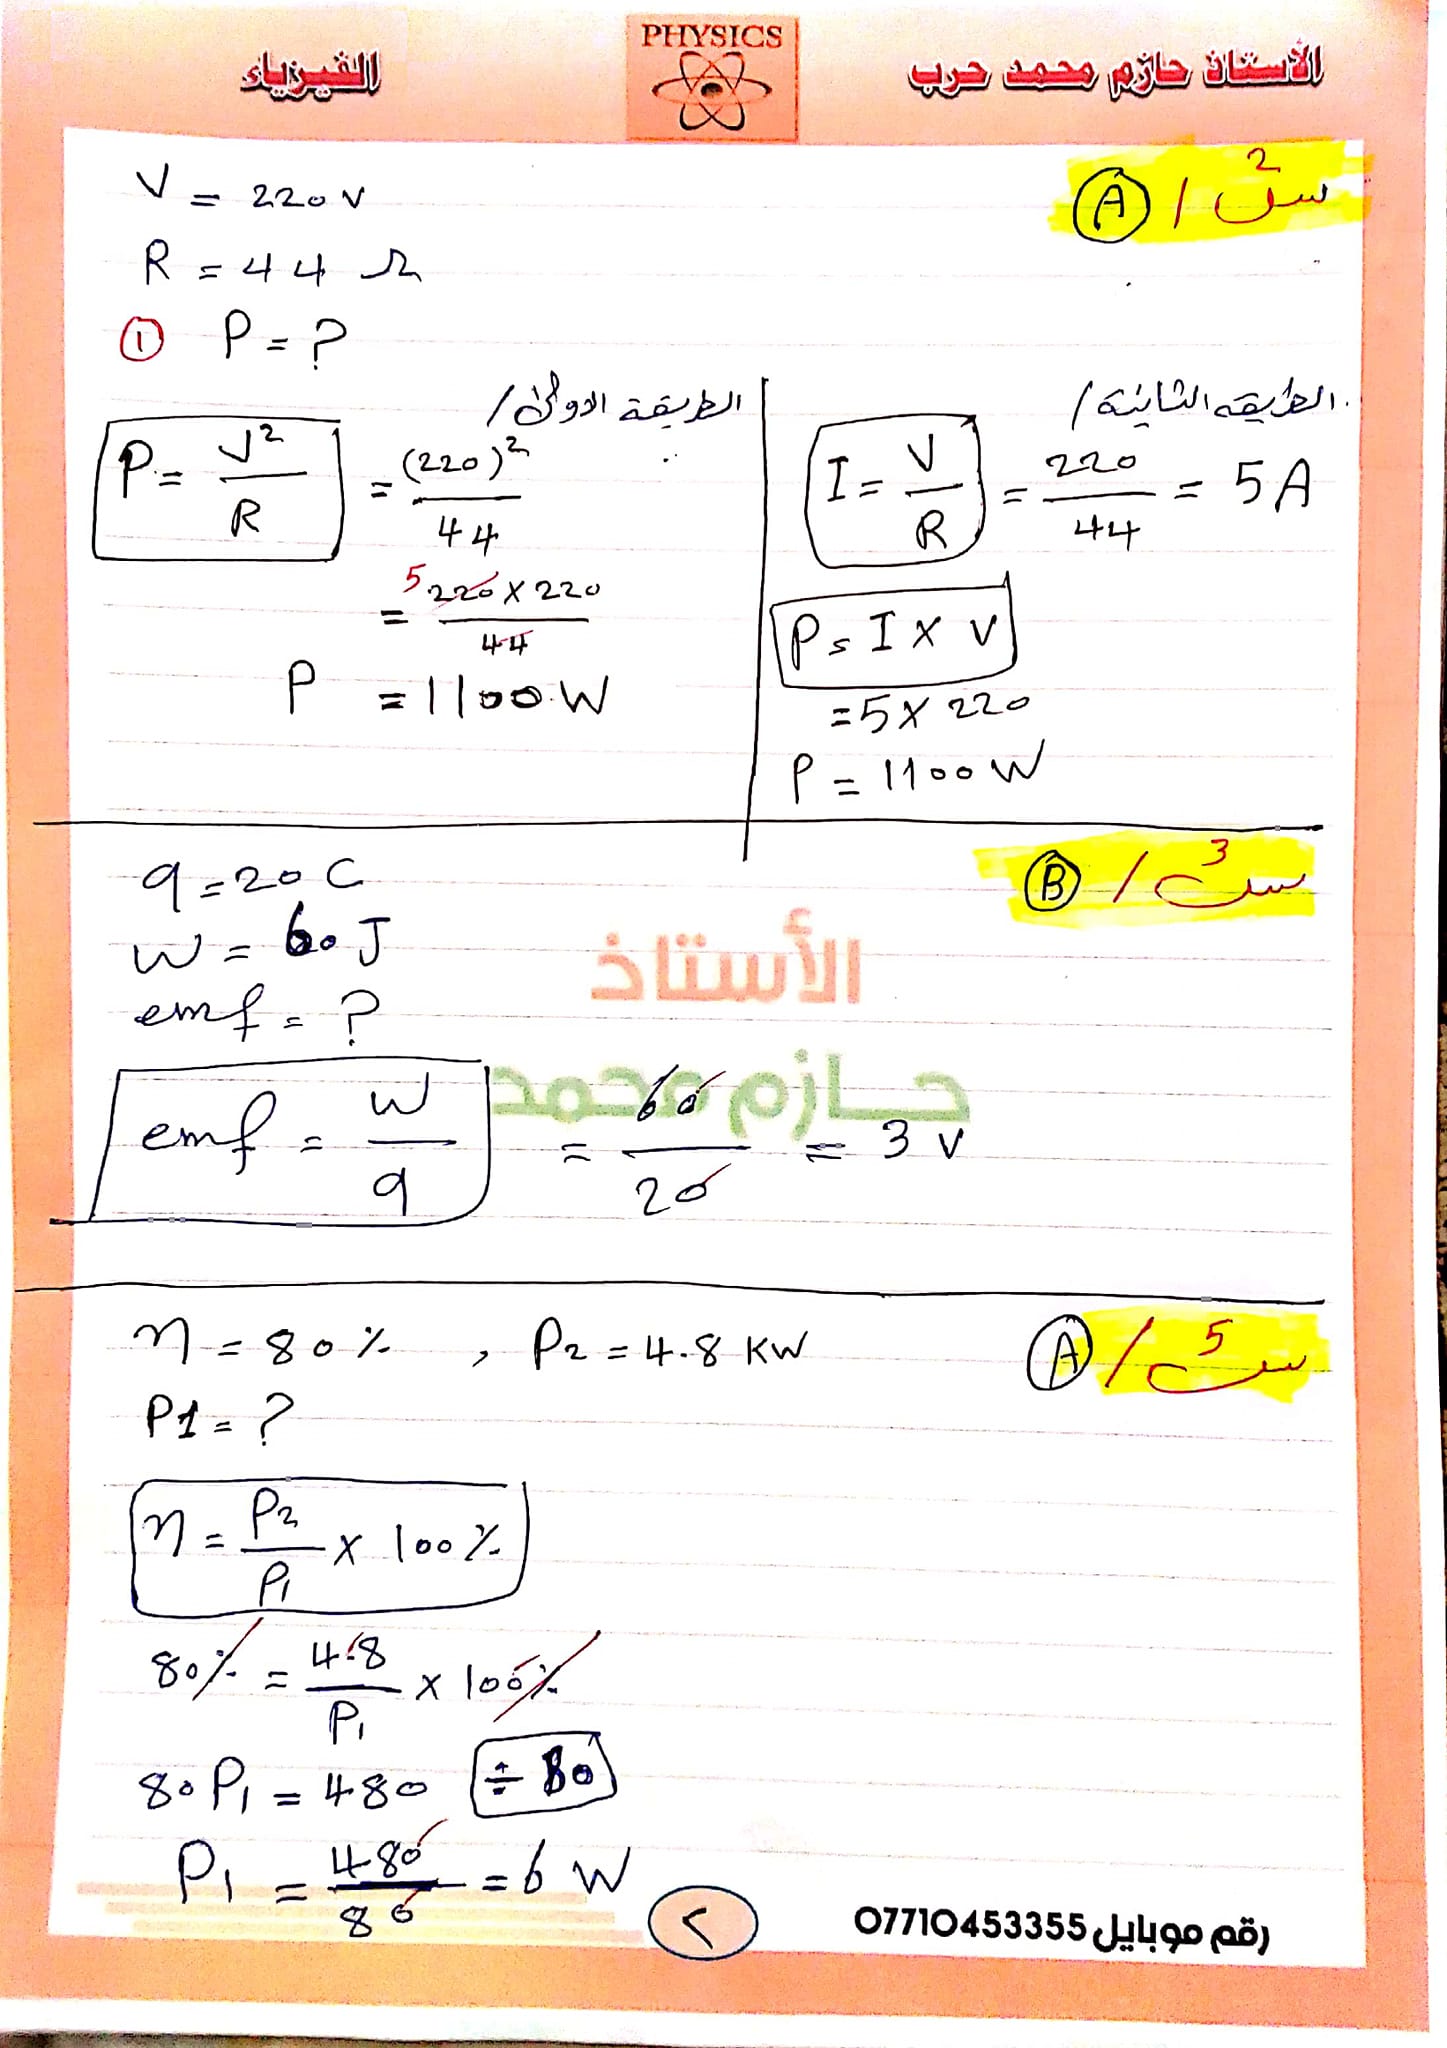 الأستاذ حازم محمد حرب
PHYSICS
الفيزياء
س2 / A
V = 220 V
R = 44 Ω
① P = ?
الطريقة الاولى /
P = V² / R = (220)² / 44
= 5 220 X 220 / 44
P = 1100 W
الطريقه الثانية /
I = V / R = 220 / 44 = 5 A
P = I X V
= 5 X 220
P = 1100 W
س3 / B
q = 20 C
W = 60 J
emf = ?
emf = W / q = 60 / 20 = 3 V
الأستاذ
حازم محمد
س5 / A
η = 80 % , P2 = 4.8 KW
P1 = ?
η = P2 / P1 X 100 %
80 % = 4.8 / P1 X 100 %
80 P1 = 480 ÷ 80
P1 = 480 / 80 = 6 W
٢
رقم موبايل 07710453355